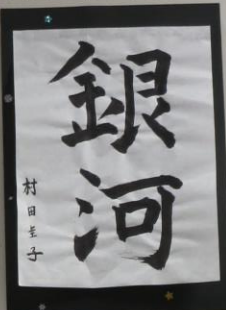 銀河
村田圭子